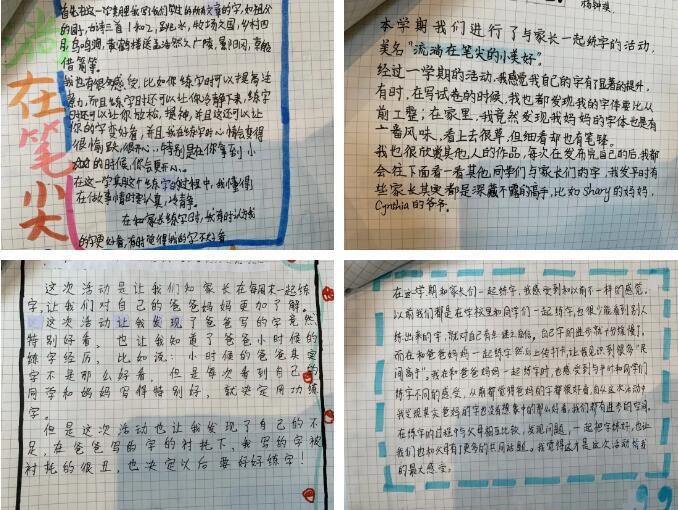 流淌在笔尖
首先在这一学期里我写了我们学过的所有文章的字,如祖父
的园子,古诗三首1和2,月是故乡明,牧场之国,乡村四
月,鸟鸣涧,黄鹤楼送孟浩然之广陵,夏日田园,草船
借箭等。
我也有很多感受,比如你练字时可以提高注
意力,而且练字时还可以让你冷静下来,练字
时还可以让你放松,提神,并且这还可以让
你的字变好看,并且我在练字时心情会变得
很愉跃,很开心,特别是在你拿到小
的时候,你会更开心。
在这一学期这个练字的过程中,我懂得
在做事情时要认真,冷静。
在和家长练字时,我有时认为我
的字更好看,有时觉得我的字不好看
本学期我们进行了与家长一起练字的活动,
美名“流淌在笔尖的小美好”。
经过一学期的活动,我感觉我自己的字有了显著的提升,
有时,在写试卷的时候,我也都发现我的字体要比从
前工整;在家里,我竟然发现我妈妈的字体也是有
一番风味,看上去很草,但细看却也有笔锋。
我也很欣赏其他人的作品,每次在发布完自己的后,我都
会往下面看一看其他同学们与家长们的字,我发现有
些家长其实都是深藏不露的高手,比如Shary的妈妈,
Cynthia的爷爷。
这次活动是让我们和家长在每周末一起练
字,让我们对自己的爸爸妈妈更加了解。
这次活动让我发现了爸爸写的字竟然
特别好看,也让我知道了爸爸小时候的
练字经历,比如说:小时候的爸爸其实
字不是那么好看,但是每次看到自己的
同学和妈妈写得特别好,就决定用功练
字。
但是这次活动也让我发现了自己的不
足,在爸爸写的字的衬托下,我写的字被
衬托的很丑,也决定以后要好好练字!
在这一学期和家长们一起练字,我感受到和以前不一样的感觉。
以前我们都是在学校里和同学们一起练字,也很少能看到别人
练出来的字,就对自己有些过之自信。自己字的进步就十分缓慢了,
而在和爸爸妈妈一起练字然后上传打卡,让我见识到很多“民
间高手”。我在和爸爸妈妈一起练字时,也感受到与平时和同学们
练字不同的感受,从前都觉得爸妈的字都很好看,自从这次活动中
我发现其实爸妈的字也没有想象中的那么好看,我们都有进步的空间,
在练字的过程中与父母相互比较,发现问题,一起把字练好,也让
我们也和父母有了更多的共同话题。我觉得这才是这次活动所有
的最大感受。